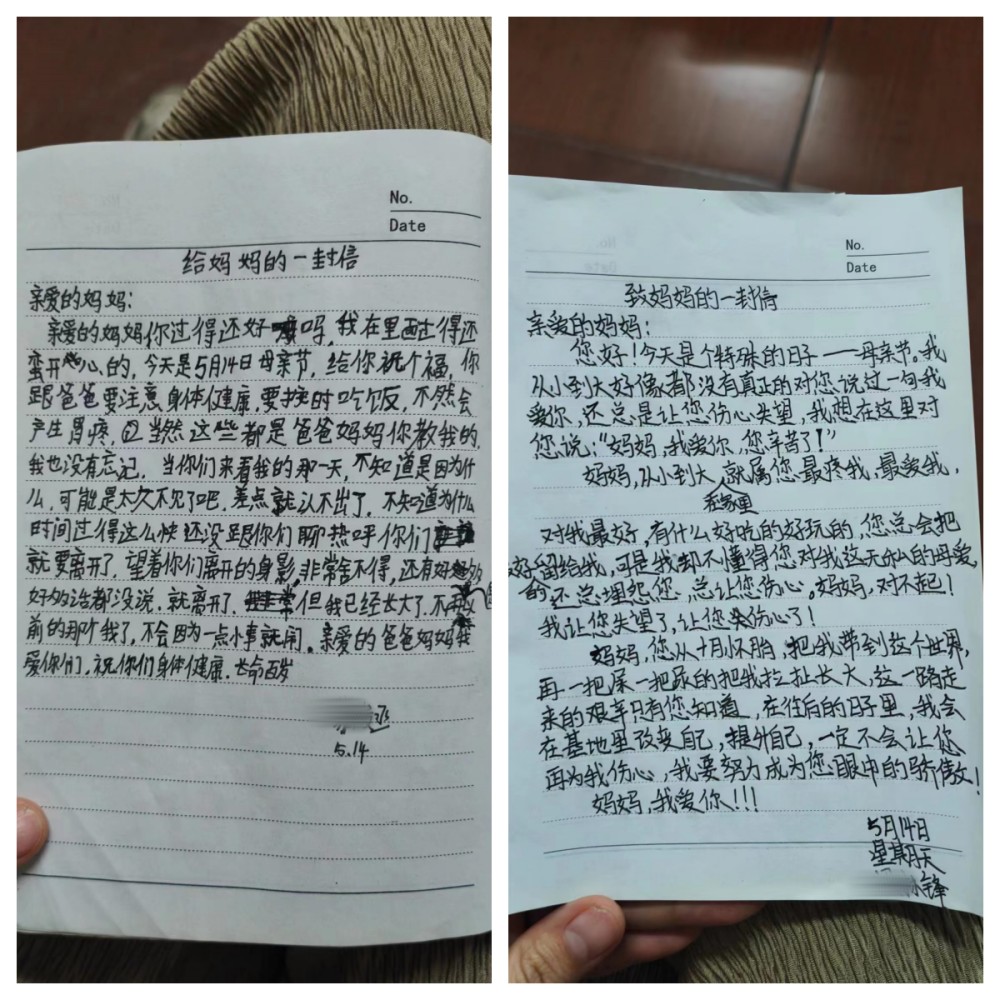 No.
Date
给妈妈的一封信
亲爱的妈妈:
亲爱的妈妈你过得还好吗,我在里面过得还
蛮开心的,今天是5月14日母亲节,给你祝个福,你
跟爸爸要注意身体健康,要按时吃饭,不然会
产生胃疼,当然这些都是爸爸妈妈你教我的,
我也没有忘记,当你们来看我的那一天,不知道是因为什
么,可能是太久不见了吧,差点就认不出了,不知道为什么
时间过得这么快还没跟你们聊热呼你们
就要离开了,望着你们离开的身影,非常舍不得,还有好多
好多话都没说,就离开了,但我已经长大了,不再
前的那个我了,不会因为一点小事就闹。亲爱的爸爸妈妈我
爱你们,祝你们身体健康,长命百岁
丞
5.14
No.
Date
致妈妈的一封信
亲爱的妈妈:
您好!今天是个特殊的日子——母亲节。我
从小到大好像都没有真正的对您说过一句我
爱你,还总是让您伤心失望,我想在这里对
您说:“妈妈,我爱你,您辛苦了!”
妈妈,从小到大,在家里就属您最疼我,最爱我,
对我最好,有什么好吃的好玩的,您总会把
好的留给我,可是我却不懂得您对我这无私的母爱,
还总埋怨您,总让您伤心。妈妈,对不起!
我让您失望了,让您伤心了!
妈妈,您从十月怀胎,把我带到这个世界,
再一把屎一把尿的把我拉扯长大,这一路走
来的艰辛只有您知道,在往后的日子里,我会
在基地里改变自己,提升自己,一定不会让您
再为我伤心,我要努力成为您眼中的骄傲!
妈妈,我爱你!!!
5月14日
星期天
锋